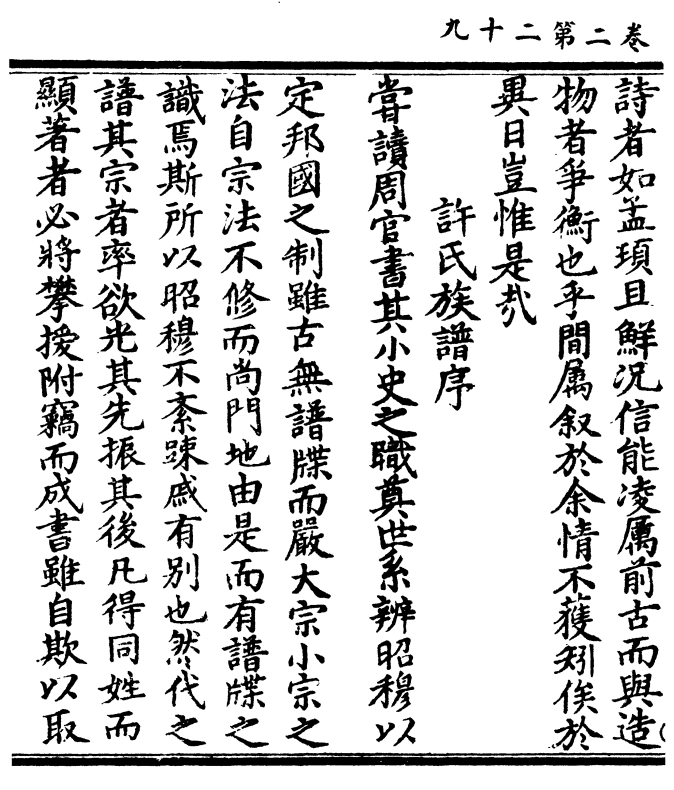 卷二第二十九
詩者如孟頊且鮮况信能凌厲前古而與造
物者爭衡也乎間属叙於余情不獲矧俟於
異日豈惟是㢤
許氏族譜序
嘗讀周官書其小史之職奠世系辨昭穆以
定邦國之制雖古無譜牒而嚴大宗小宗之
法自宗法不修而尚門地由是而有譜牒之
識焉斯所以昭穆不紊踈戚有别也然代之
譜其宗者率欲光其先振其後凡得同姓而
顯著者必將攀援附竊而成書雖自欺以取